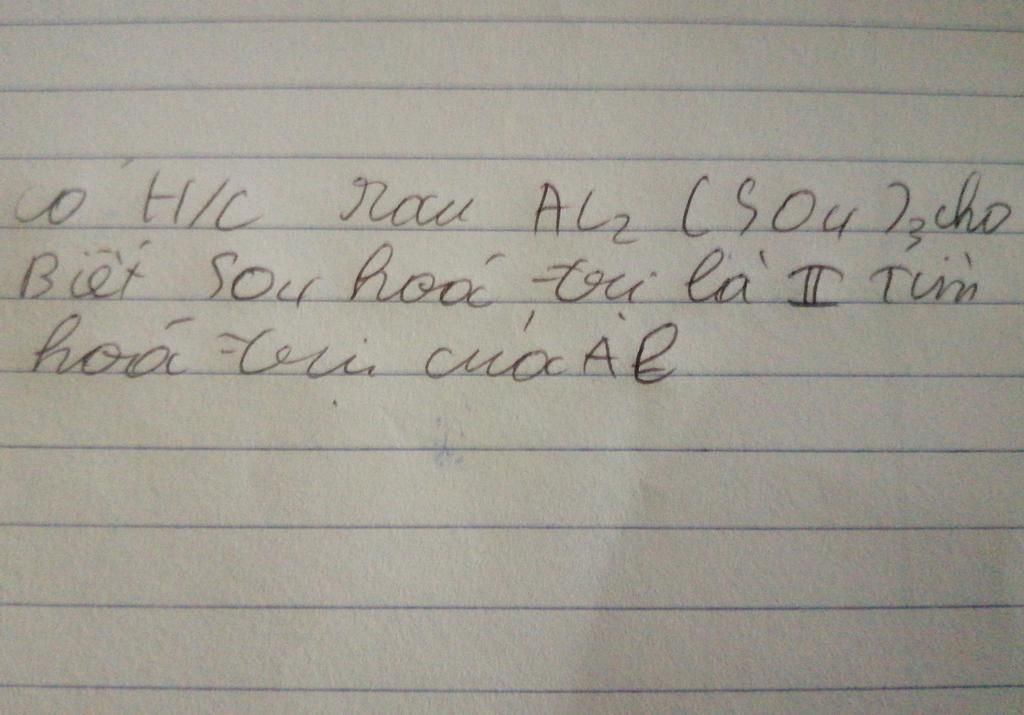 có H/C sau AL2 (SO4)3 cho
Biết SO4 hoá trị là II Tìm
hoá trị của Al